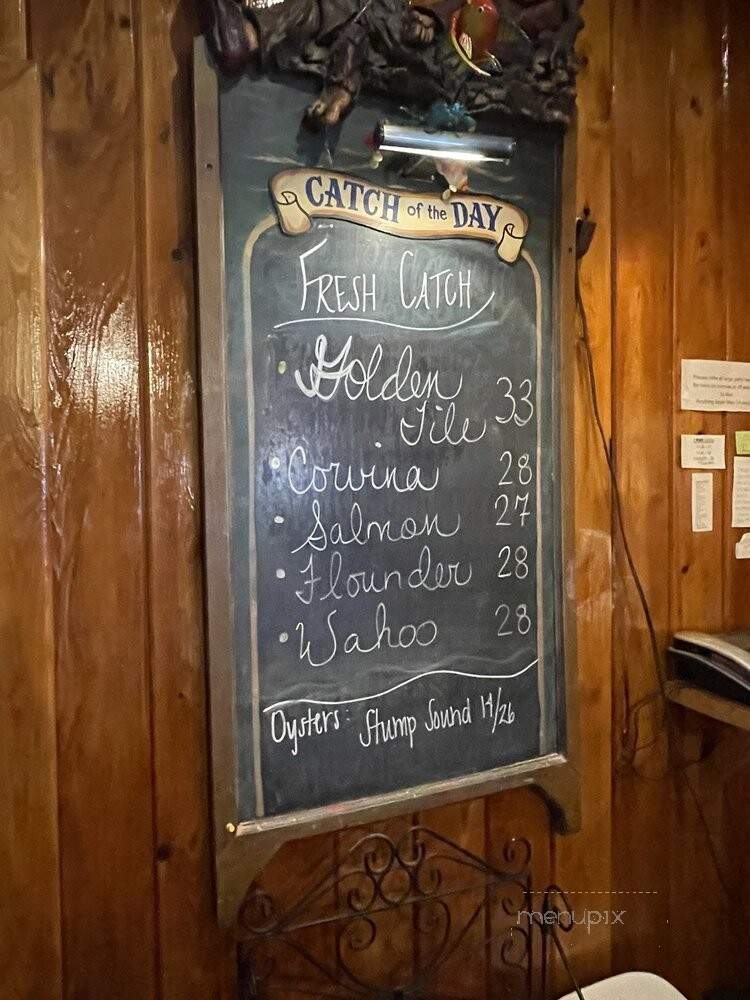 CATCH of the DAY
FRESH CATCH
• Golden
Tile 33
• Corvina 28
• Salmon 27
• Flounder 28
• Wahoo 28
Oysters: Stump Sound 14/26
menupix